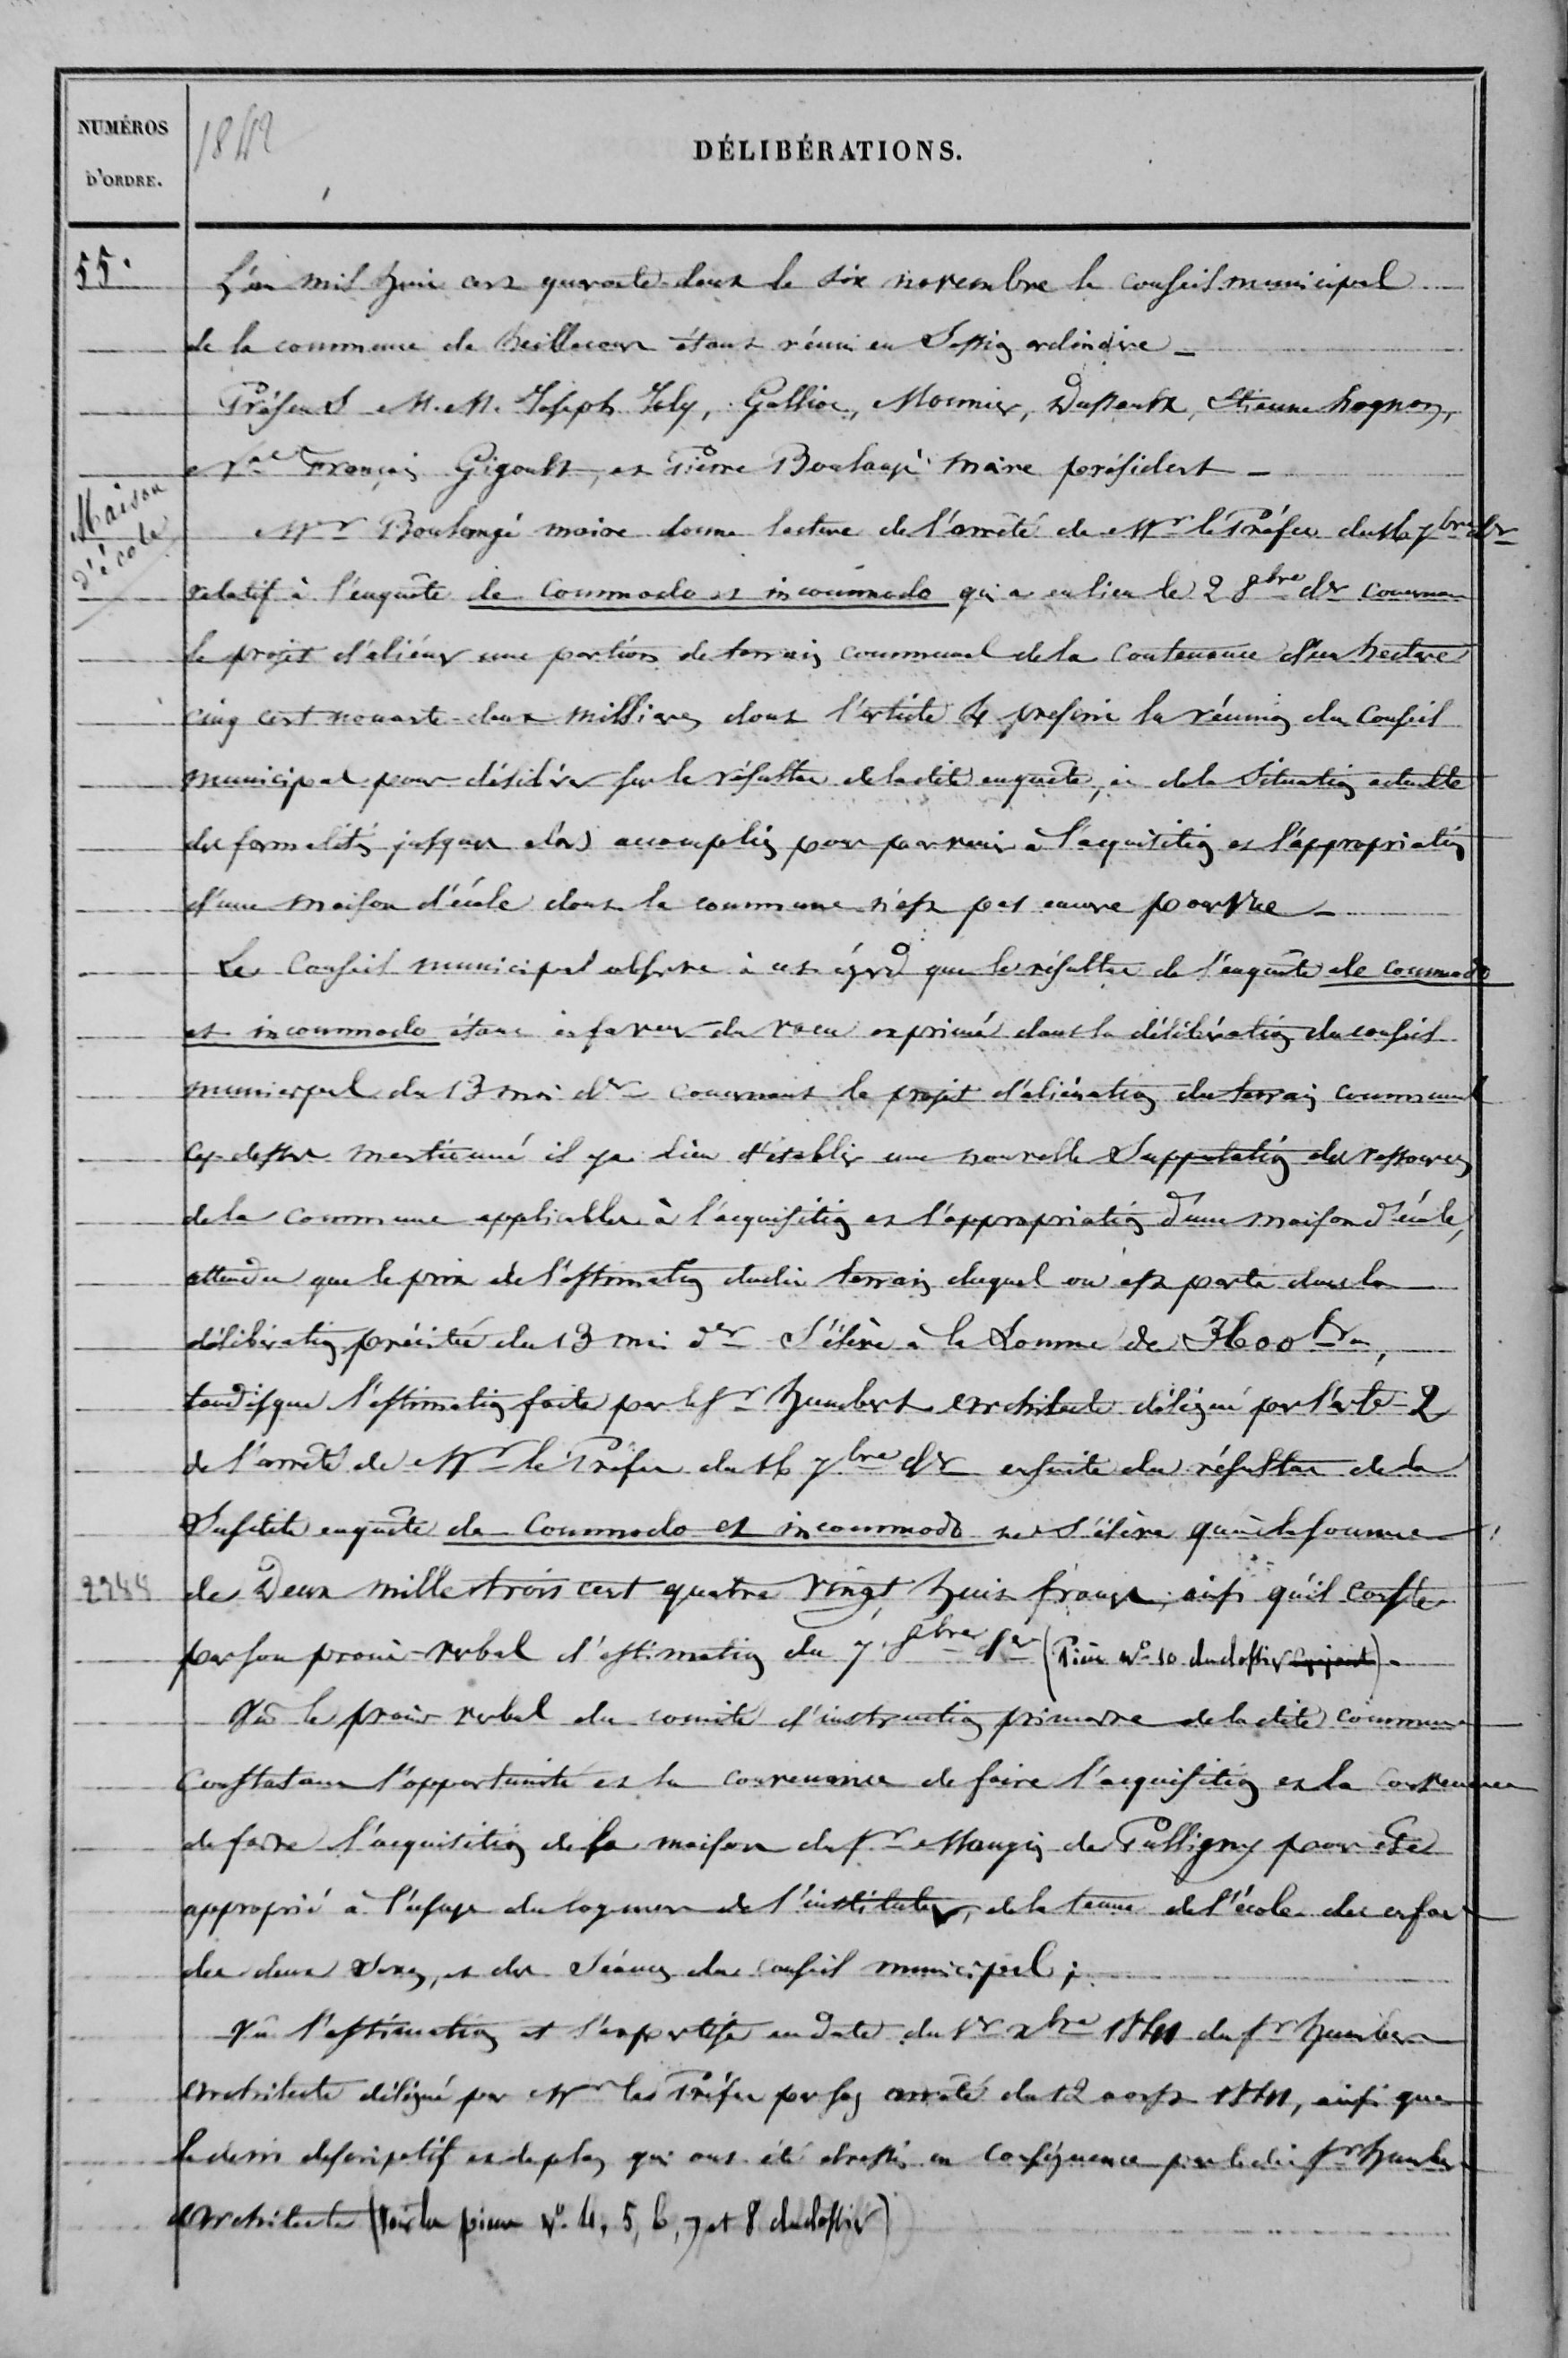 NUMÉROS
D'ORDRE.
1842
DÉLIBÉRATIONS.
55.
L'an mil huit cent quarante-deux le six novembre le conseil municipal
de la commune de étant réuni en Session ordinaire
Présents M.M. Joseph Joly, Galliot, Mounier, Dussaulx, Etienne hognon,
François Gigoult, et Pierre Boulangé maire président
Maison
d'école
Mr Boulangé maire donne lecture de l'arrêté de Mr le Préfet du 16 7bre der
relatif à l'enquête de commodo et incommodo qui a eu lieu le 2 8bre der concernant
le projet d'aliéner une portion de terrain communal de la contenance d'un hectare
cinq cent nonante-deux milliares dont l'article 4 prescrit la réunion du Conseil
municipal pour délibérer sur le résultat de la dite enquête, et de la Situation actuelle
des formalités jusques alors accomplies pour parvenir à l'acquisition et l'appropriation
d'une maison d'école dont la commune n'est pas encore pourvue
Le Conseil municipal observe à cet égard que le résultat de l'enquête de commodo
et incommodo étant en faveur du voeu exprimé dans la délibération du conseil
municipal du 13 mai der concernant le projet d'aliénation du terrain communal
cy-dessus mentionné il y a lieu d'établir une nouvelle Supputation des ressources
de la commune applicables à l'acquisition et l'appropriation d'une maison d'école,
attendu que le prix de l'estimation dudit terrain duquel est porté dans la
délibération précitée du 13 mai der S'élève à la Somme de 3600 frs,
tandisque l'estimation faite par le Sr humbert architecte délégué par l'arte 2
de l'arrêté de Mr le Préfet du 16 7bre der ensuite du résultat de la
Susdite enquête de commodo et incommodo ne S'élève qu'à la somme
2388
de Deux mille trois cent quatre vingt huit francs, ainsi qu'il conste
par son procès-verbal d'estimation du 7 8bre der (Pièce No 10 du dossier cy-joint).
Vû le procès verbal du comité d'instruction primaire de la dite commune
Constatant l'opportunité et la convenance de faire l'acquisition et la convenance
de faire l'acquisition de la maison du Sr Mangin de Pulligny pour être
approprié à l'usage du logement de l'instituteur, de la tenue de l'école des enfants
des deux Sexes, et des Séances du conseil municipal ;
Vû l'estimation et l'expertise en date du 1er xbre 1841 du Sr humbert
architecte délégué par Mr le Préfet par son arrêté du 12 août 1841, ainsi que
le devis descriptif et de plan qui ont été dressés en conséquence par ledit Sr humbert
architecte (voir les pièces No 4, 5, 6, 7 et 8 du dossier)